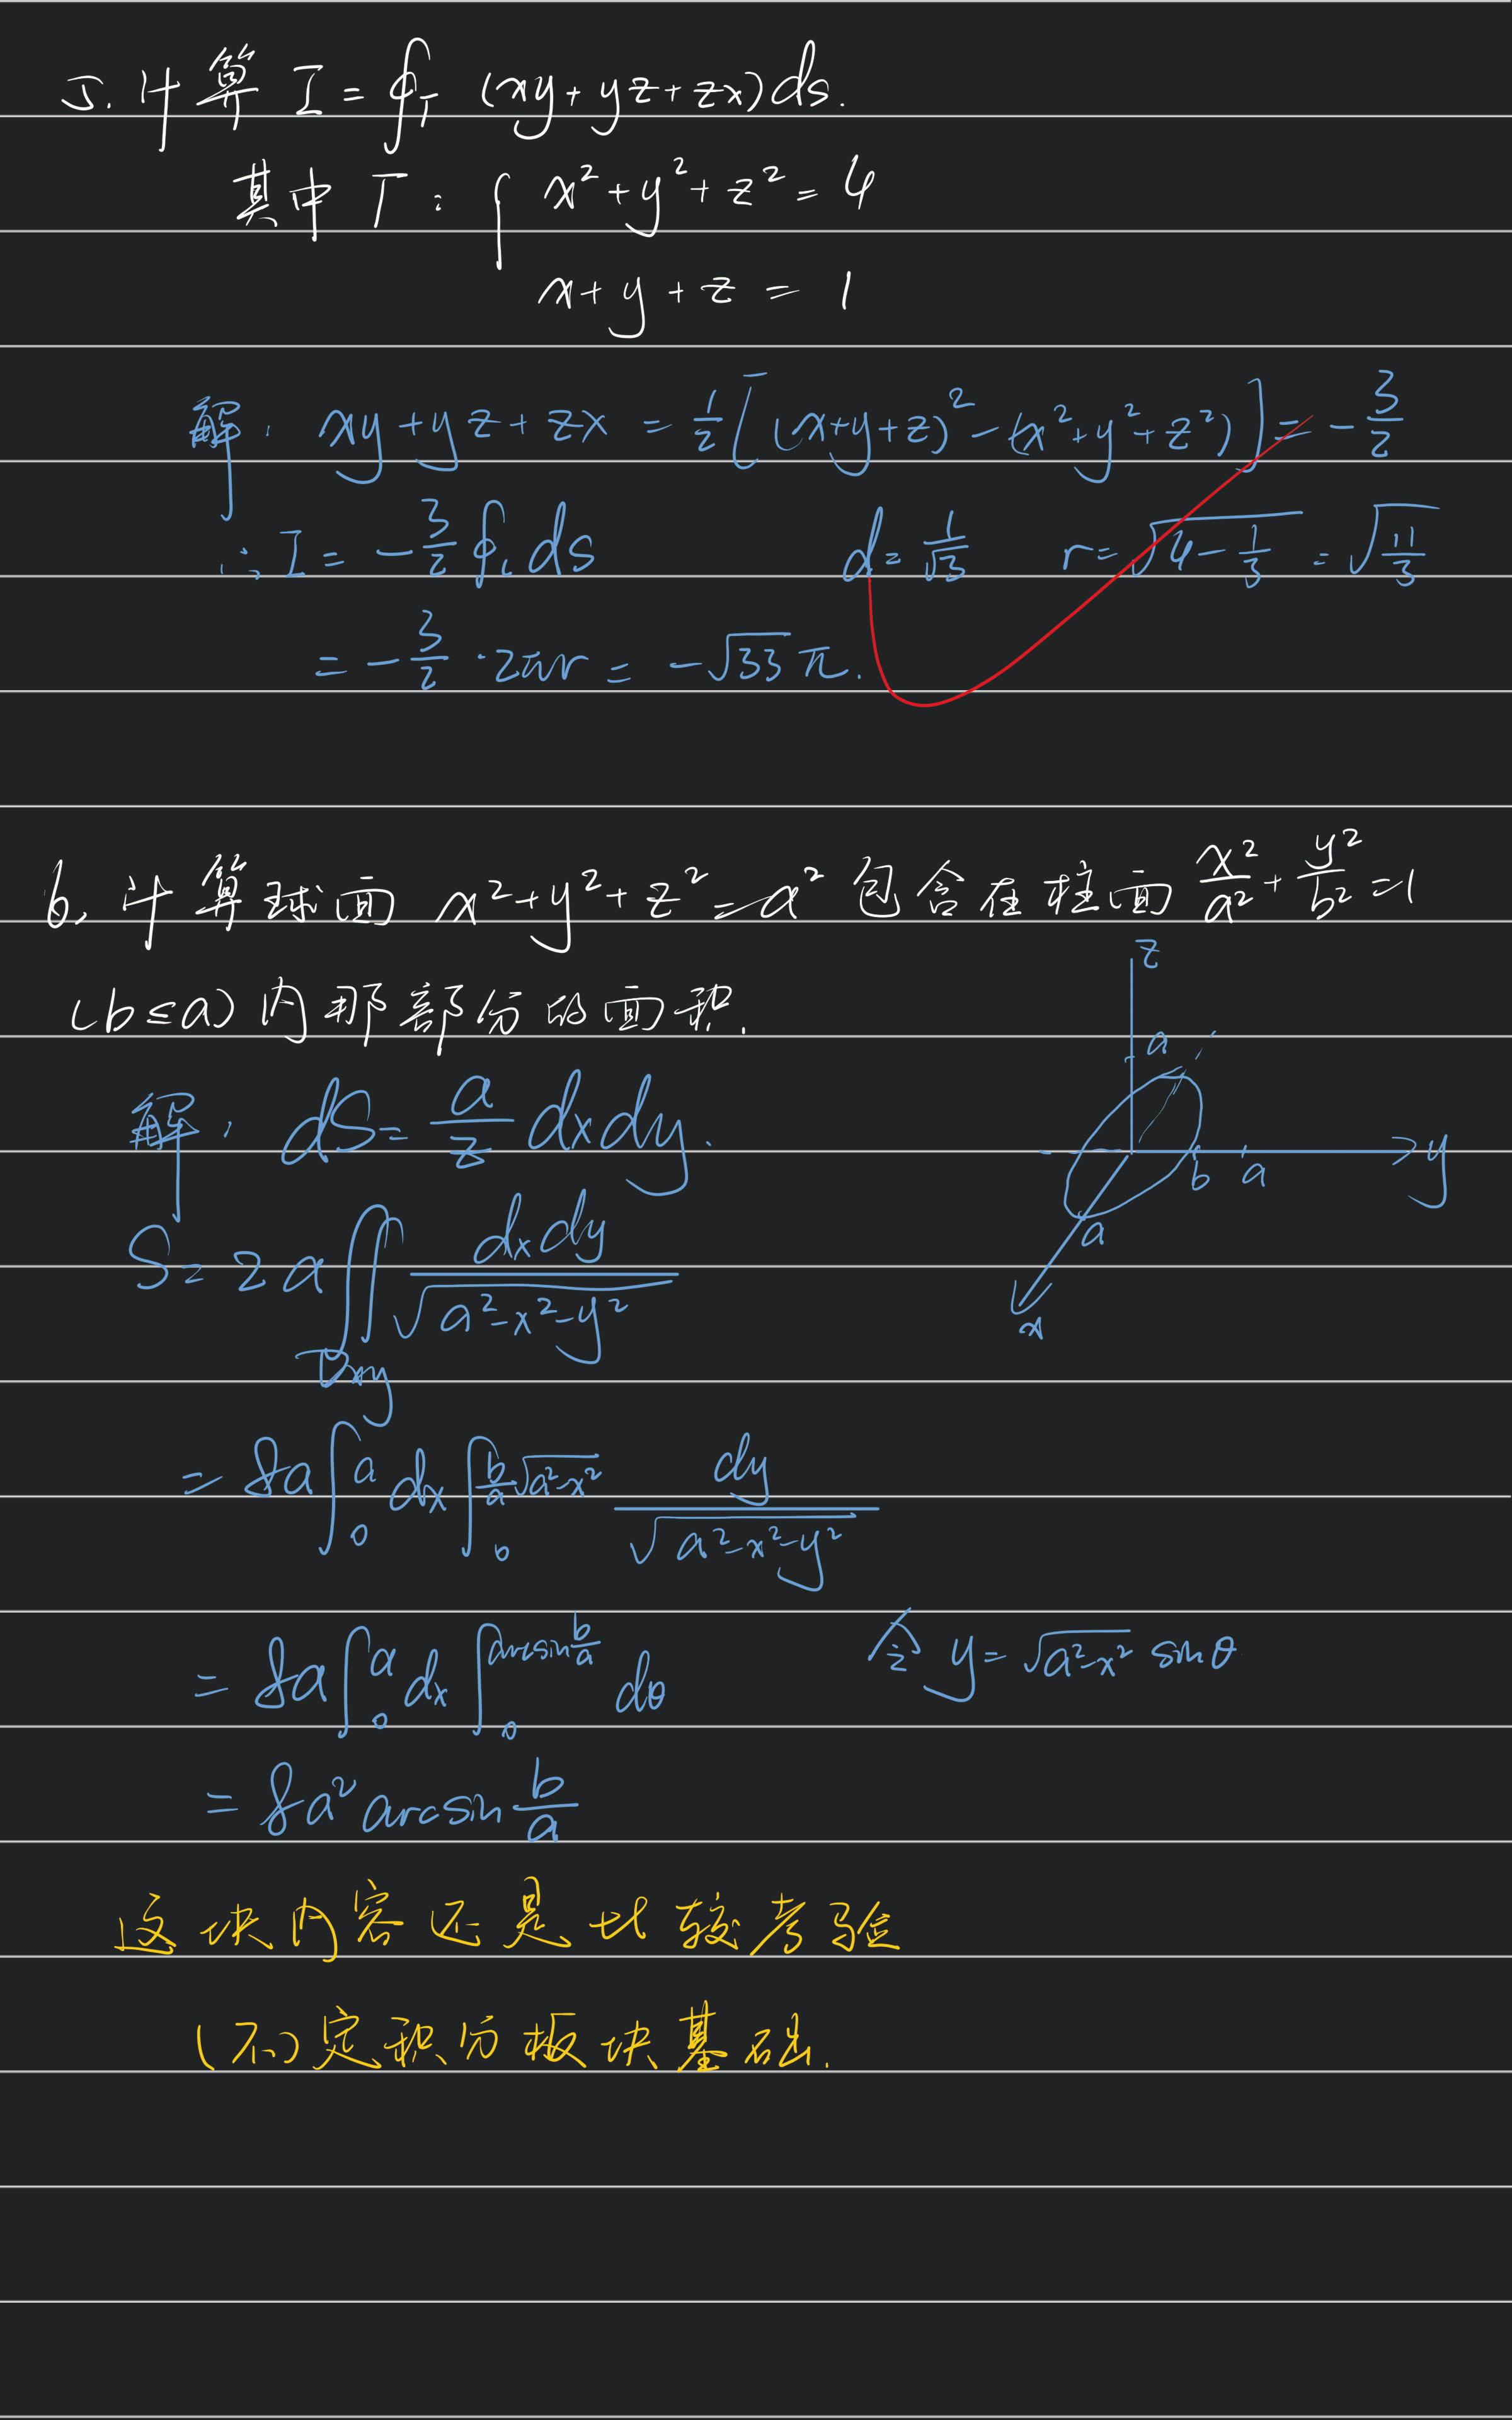 5. 计算 I = ∮_Γ (xy+yz+zx)ds.
其中 Γ: { x²+y²+z²=4
x+y+z = 1
解: xy+yz+zx = 1/2[(x+y+z)²-(x²+y²+z²)] = -3/2
∴ I = -3/2 ∮_Γ ds d = 1/√3 r = √(4-1/3) = √(11/3)
= -3/2 · 2πr = -√33 π.
6. 计算球面 x²+y²+z²=a² 包含在柱面 x²/a²+y²/b²=1
(b≤a) 内那部分的面积.
z
a
y
b a
a
x
解: dS = a/z dxdy.
S = 2a ∬_Dxy dxdy/√(a²-x²-y²)
= 8a ∫_0^a dx ∫_0^(b/a √(a²-x²)) dy/√(a²-x²-y²)
= 8a ∫_0^a dx ∫_0^(arcsin b/a) dθ 令 y = √(a²-x²) sinθ
= 8a² arcsin b/a
这块内容还是比较考验
(不)定积分板块基础.